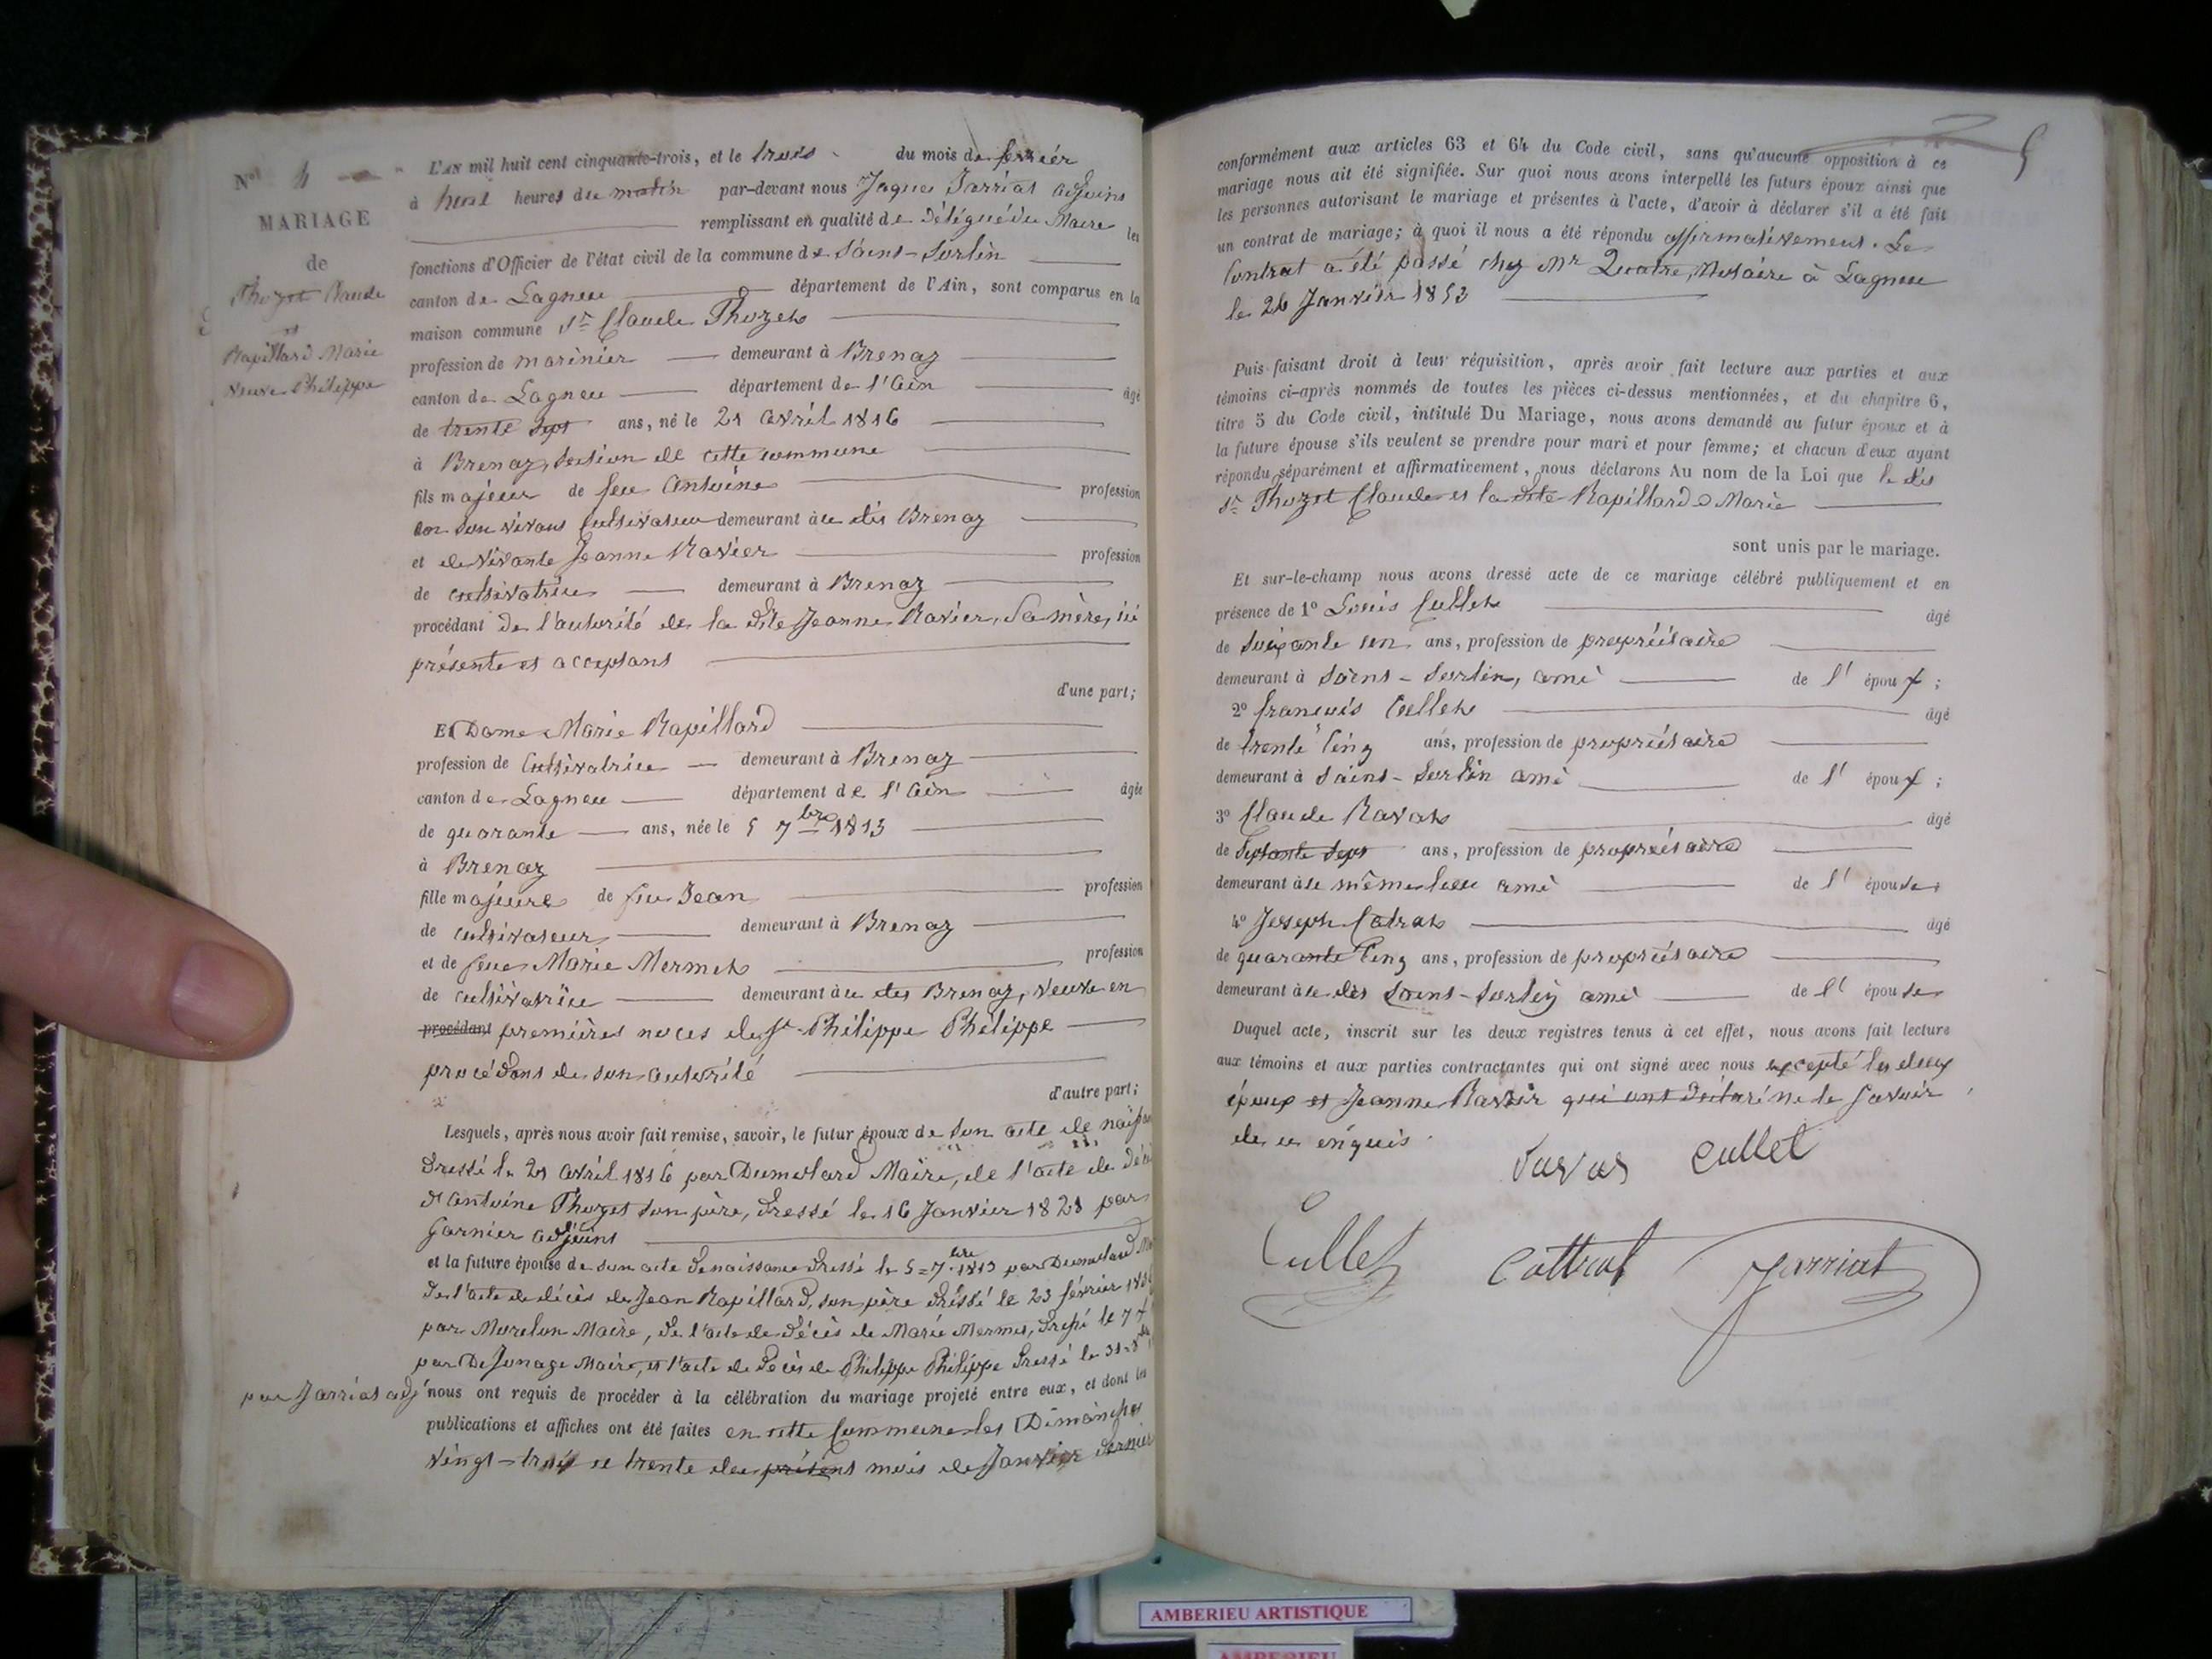 Nº 4
MARIAGE
de
Thozet Claude
et
Rapillard Marie
veuve Philippe
L'AN mil huit cent cinquante-trois, et le trois du mois de février
à huit heures du matin par-devant nous Jaques Jarriat adjoint
remplissant en qualité de Délégué du Maire les
fonctions d'Officier de l'état civil de la commune de Saint-Sorlin
canton de Lagneu département de l'Ain, sont comparus en la
maison commune Sr Claude Thozet
profession de marinier demeurant à Brenaz
canton de Lagneu département de l'Ain âgé
de trente sept ans, né le 21 avril 1816
à Brenaz, section de cette commune
fils majeur de feu Antoine profession
en son vivant cultivateur demeurant au dit Brenaz
et de vivante Jeanne Ravier profession
de cultivatrice demeurant à Brenaz
procédant de l'autorité de la dite Jeanne Ravier, sa mère, ici
présente et acceptant
d'une part;
Et Dame Marie Rapillard
profession de cultivatrice demeurant à Brenaz
canton de Lagneu département de l'Ain âgée
de quarante ans, née le 5 7bre 1813
à Brenaz
fille majeure de feu Jean profession
de cultivateur demeurant à Brenaz
et de feue Marie Mermet profession
de cultivatrice demeurant au dit Brenaz, veuve en
procédant premières noces de Sr Philippe Philippe
procédant de son autorité
d'autre part;
Lesquels, après nous avoir fait remise, savoir, le futur époux de son acte de
dressé le 21 avril 1816 par Dumolard Maire, de l'acte de
d'Antoine Thozet son père, dressé le 16 Janvier 1821 par
Garnier adjoint
et la future épouse de son acte de naissance dressé le 5 7bre 1813 par Dumolard
de l'acte de décès de Jean Rapillard, son père dressé le 23 février
par Morelon Maire, de l'acte de décès de Marie Mermet, dressé le 7
par Dejonage Maire, et l'acte de décès de Philippe Philippe dressé le 31
par Jarriat adjt nous ont requis de procéder à la célébration du mariage projeté entre eux, et dont les
publications et affiches ont été faites en cette Commune les Dimanches
vingt-trois et trente du présent mois de Janvier dernier
5
conformément aux articles 63 et 64 du Code civil, sans qu'aucune opposition à ce
mariage nous ait été signifiée. Sur quoi nous avons interpellé les futurs époux ainsi que
les personnes autorisant le mariage et présentes à l'acte, d'avoir à déclarer s'il a été fait
un contrat de mariage; à quoi il nous a été répondu affirmativement. Le
Contrat a été passé chez Mr Quatre, Notaire à Lagneu
le 26 Janvier 1853
Puis faisant droit à leur réquisition, après avoir fait lecture aux parties et aux
témoins ci-après nommés de toutes les pièces ci-dessus mentionnées, et du chapitre 6,
titre 5 du Code civil, intitulé Du Mariage, nous avons demandé au futur époux et à
la future épouse s'ils veulent se prendre pour mari et pour femme; et chacun d'eux ayant
répondu séparément et affirmativement, nous déclarons Au nom de la Loi que le dit
Sr Thozet Claude et la dite Rapillard Marie
sont unis par le mariage.
Et sur-le-champ nous avons dressé acte de ce mariage célébré publiquement et en
présence de 1º Louis Cullet âgé
de soixante un ans, profession de propriétaire
demeurant à Saint-Sorlin, ami de l'époux;
2º françois Cullet âgé
de trente cinq ans, profession de propriétaire
demeurant à Saint-Sorlin ami de l'époux;
3º Claude Ravat âgé
de septante sept ans, profession de propriétaire
demeurant au même lieu ami de l'épouse
4º Joseph Catrat âgé
de quarante cinq ans, profession de propriétaire
demeurant au dit Saint-Sorlin ami de l'épouse
Duquel acte, inscrit sur les deux registres tenus à cet effet, nous avons fait lecture
aux témoins et aux parties contractantes qui ont signé avec nous excepté les deux
époux et Jeanne Ravier qui ont déclaré ne le savoir
de ce enquis.
Cullet
Cullet Cottrat Jarriat
AMBERIEU ARTISTIQUE
AMBERIEU